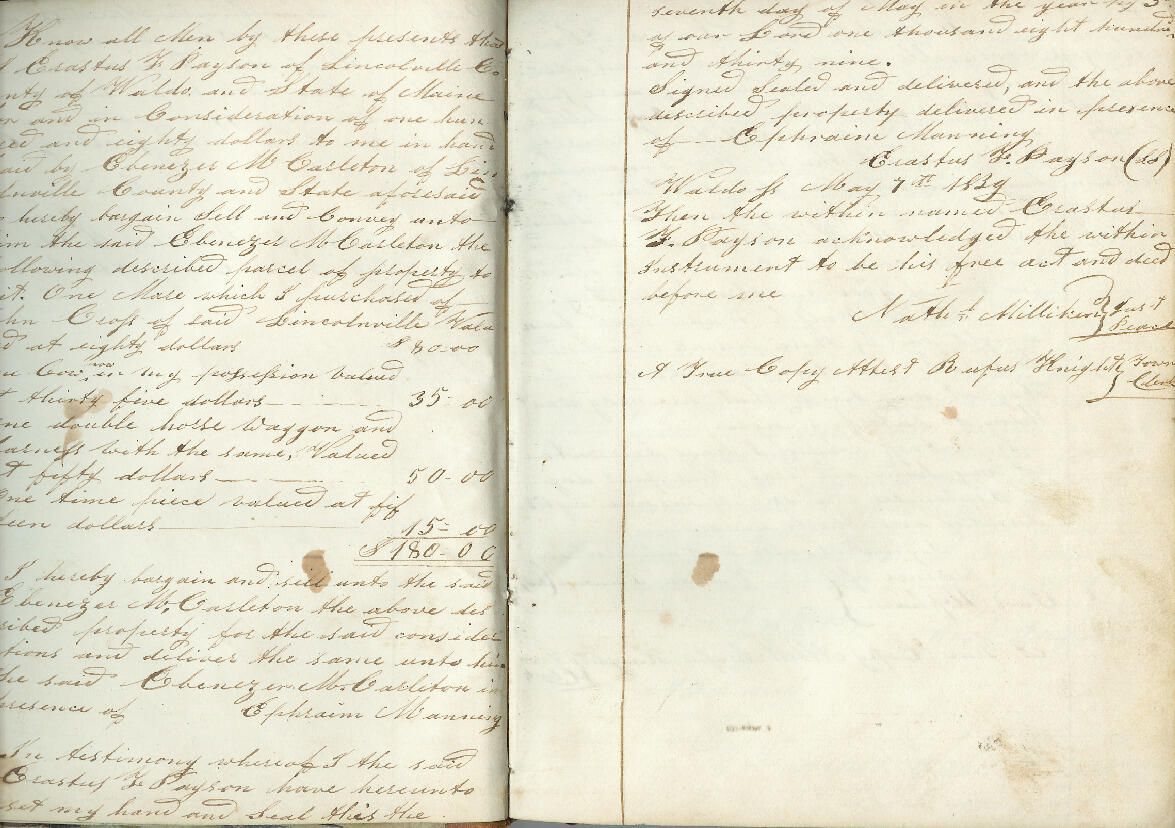 Know all Men by these presents that
I Erastus F. Payson of Lincolnville Co
nty of Waldo and State of Maine
r and in Consideration of one hun
red and eighty dollars to me in hand
aid by Ebenezer McCarleton of Lin
lnville County and State aforesaid
o hereby bargain Sell and Convey unto
im the said Ebenezer McCarleton the
ollowing described parcel of property to
it. One Mare which I purchased of
hn Cross of said Lincolnville Valu
d at eighty dollars $80-00
ne Cow now in my possession valued
t thirty five dollars 35-00
ne double horse Waggon and
arness with the same, Valued
t fifty dollars 50-00
One time piece valued at fif
teen dollars 15=00
$180-00
I hereby bargain and sell unto the said
Ebenezer McCarleton the above des
ribed property for the said consider
tions and deliver the same unto him
he said Ebenezer McCarleton in
presence of Ephraim Manning
In testimony whereof I the said
Erastus F. Payson have hereunto
set my hand and Seal this the
seventh day of May in the year
as our Lord one thousand eight hundre
and thirty nine.
Signed Sealed and delivered, and the above
described property delivered in presence
of Ephraim Manning
Erastus F. Payson (LS)
Waldo ss May 7th 1839
Then the within named Erastus
F. Payson acknowledged the within
Instrument to be his free act and deed
before me
Nathl. Milliken } Just
Peace
A True Copy Attest Rufus Knight } Town
Clerk